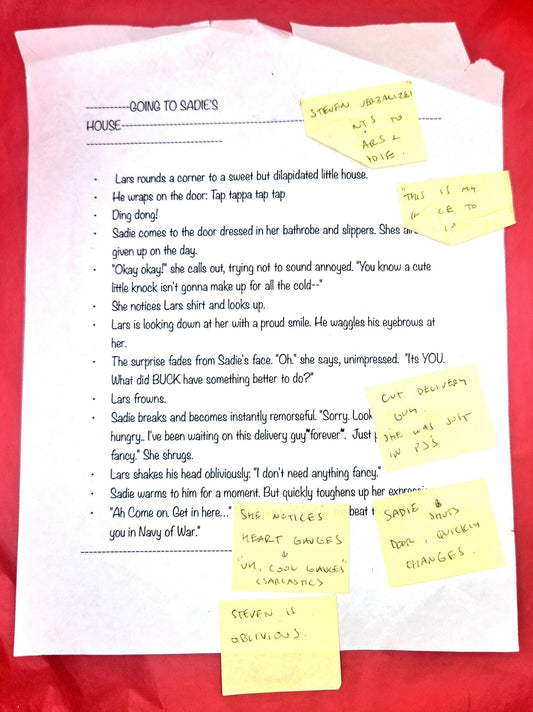 -----------GOING TO SADIE'S
HOUSE--------------------------------------------------------------------------------
----------------------------------
• Lars rounds a corner to a sweet but dilapidated little house.
• He wraps on the door: Tap tappa tap tap
• Ding dong!
• Sadie comes to the door dressed in her bathrobe and slippers. Shes
given up on the day.
• "Okay okay!" she calls out, trying not to sound annoyed. "You know a cute
little knock isn't gonna make up for all the cold--"
• She notices Lars shirt and looks up.
• Lars is looking down at her with a proud smile. He waggles his eyebrows at
her.
• The surprise fades from Sadie's face. "Oh." she says, unimpressed. "Its YOU.
What did BUCK have something better to do?"
• Lars frowns.
• Sadie breaks and becomes instantly remorseful. "Sorry. Look
hungry.. I've been waiting on this delivery guy*forever*. Just
fancy." She shrugs.
• Lars shakes his head obliviously: "I don't need anything fancy."
• Sadie warms to him for a moment. But quickly toughens up her
• "Ah Come on. Get in here..." beat
you in Navy of War."
---------------------------------------
STEVEN VERBALIZE
NTS TO
ARS &
"THIS IS MY
CE TO
CUT DELIVERY
GUY.
SHE WAS JUST
IN PJ'S
SADIE
SHUTS
DOOR, QUICKLY
CHANGES.
SHE NOTICES
HEART GAUGES
↓
"UH, COOL GAUGES"
(SARCASTIC)
STEVEN IS
OBLIVIOUS.